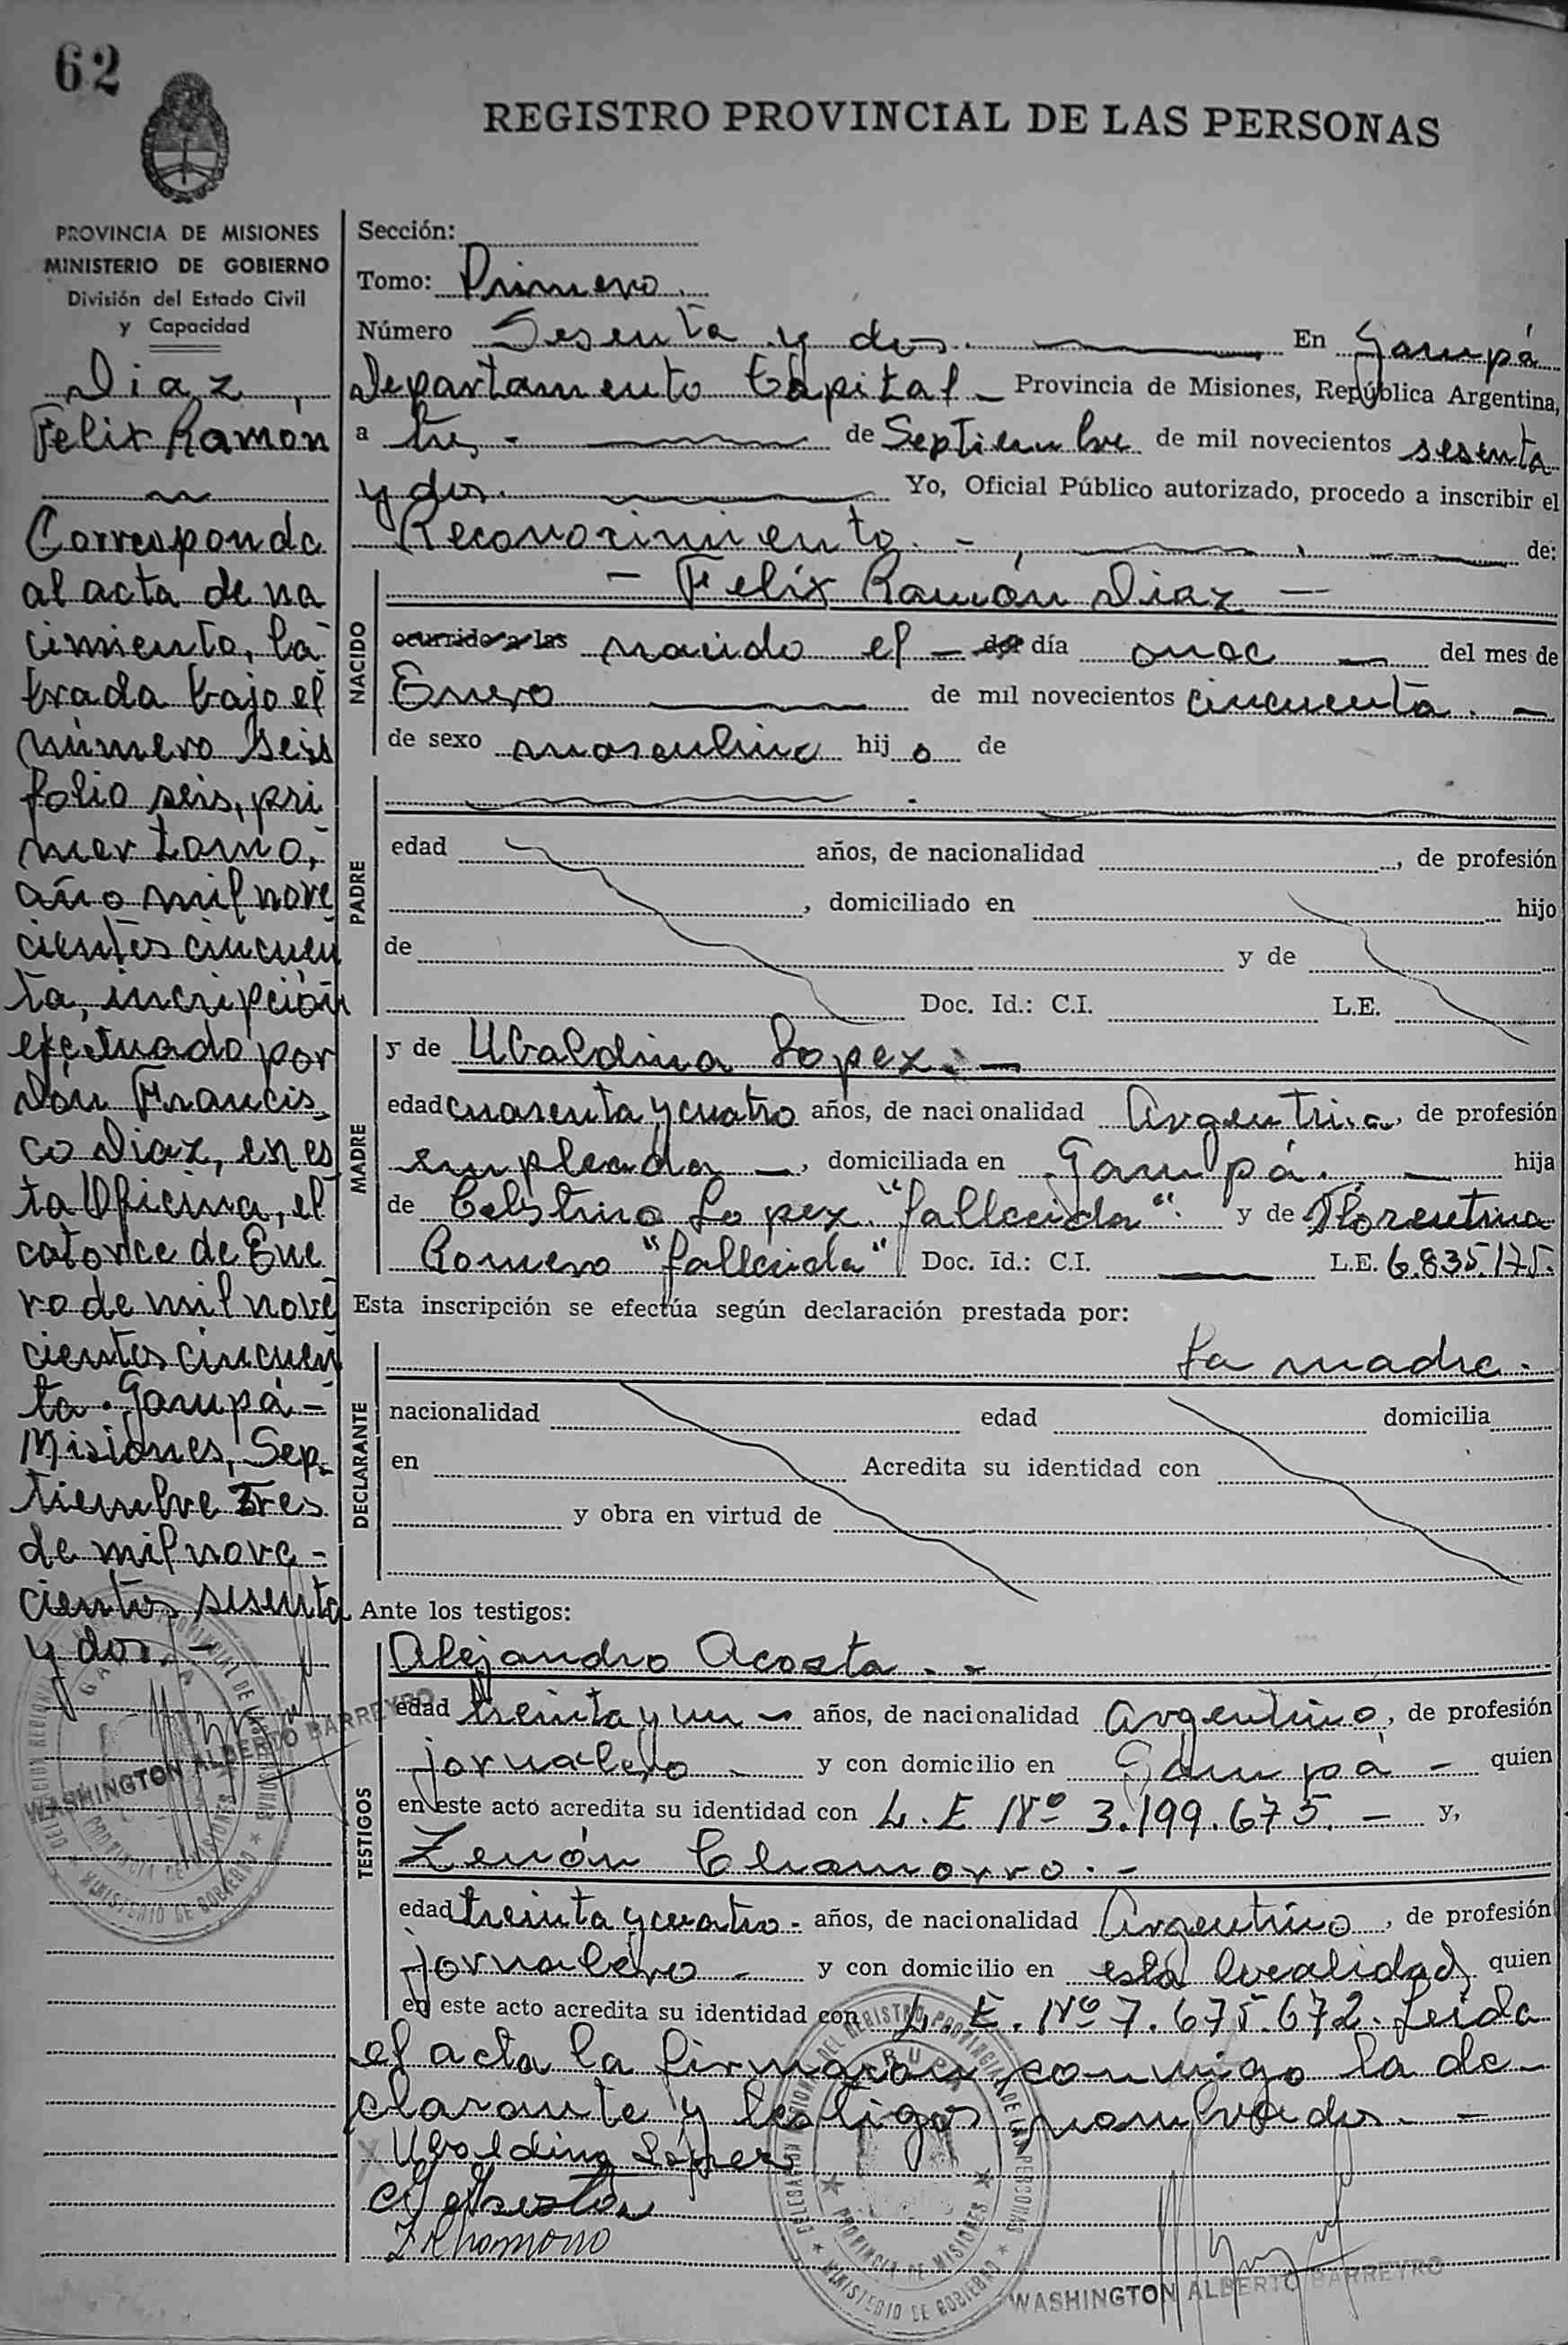 62
REGISTRO PROVINCIAL DE LAS PERSONAS
PROVINCIA DE MISIONES
MINISTERIO DE GOBIERNO
División del Estado Civil
y Capacidad
Diaz,
Felix Ramón
Corresponde
al acta de na
cimiento, la
brada bajo el
número seis
folio seis, pri
mer tomo,
año mil nove
cientos cincuen
ta, incripción
efectuado por
Don Francis
co Diaz, en es
ta Oficina, el
catorce de Ene
ro de mil nove
cientos cincuen
ta. Garupá -
Misiones, Sep-
tiembre Tres
de mil nove-
cientos sesenta
y dos. -
WASHINGTON ALBERTO BARREYRO
Sección:
Tomo: Primero.
Número Sesenta y dos. En Garupá
Departamento Capital - Provincia de Misiones, República Argentina,
a tres - de Septiembre de mil novecientos sesenta
y dos. Yo, Oficial Público autorizado, procedo a inscribir el
Reconocimiento. - de:
NACIDO
- Felix Ramón Diaz -
ocurrido a las nacido el - del día once - del mes de
Enero de mil novecientos cincuenta. -
de sexo masculino hijo de
PADRE
edad años, de nacionalidad , de profesión
, domiciliado en hijo
de y de
Doc. Id.: C.I. L.E.
MADRE
y de Ubaldina Lopez. -
edad cuarenta y cuatro años, de nacionalidad Argentina, de profesión
empleada -, domiciliada en Garupá. - hija
de Celestino Lopez "fallecida" y de Florentina
Romero "fallecida" Doc. Id.: C.I. L.E. 6.835.175.
Esta inscripción se efectúa según declaración prestada por:
DECLARANTE
La madre.
nacionalidad edad domicilia
en Acredita su identidad con
y obra en virtud de
Ante los testigos:
TESTIGOS
Alejandro Acosta. -
edad treinta y un - años, de nacionalidad Argentino, de profesión
jornalero - y con domicilio en Garupá - quien
en este acto acredita su identidad con L. E Nº 3.199.675. - y,
Zenón Chamorro. -
edad treinta y cuatro - años, de nacionalidad Argentino, de profesión
jornalero - y con domicilio en esta localidad, quien
en este acto acredita su identidad con L. E. Nº 7.675.672. Leida
el acta la firmaron conmigo la de-
clarante y testigos nombrados. -
Ubaldina Lopez
Z Chamorro
DELEGACION REGIONAL DEL REGISTRO PROVINCIAL DE LAS PERSONAS
GARUPA
PROVINCIA DE MISIONES
MINISTERIO DE GOBIERNO
WASHINGTON ALBERTO BARREYRO